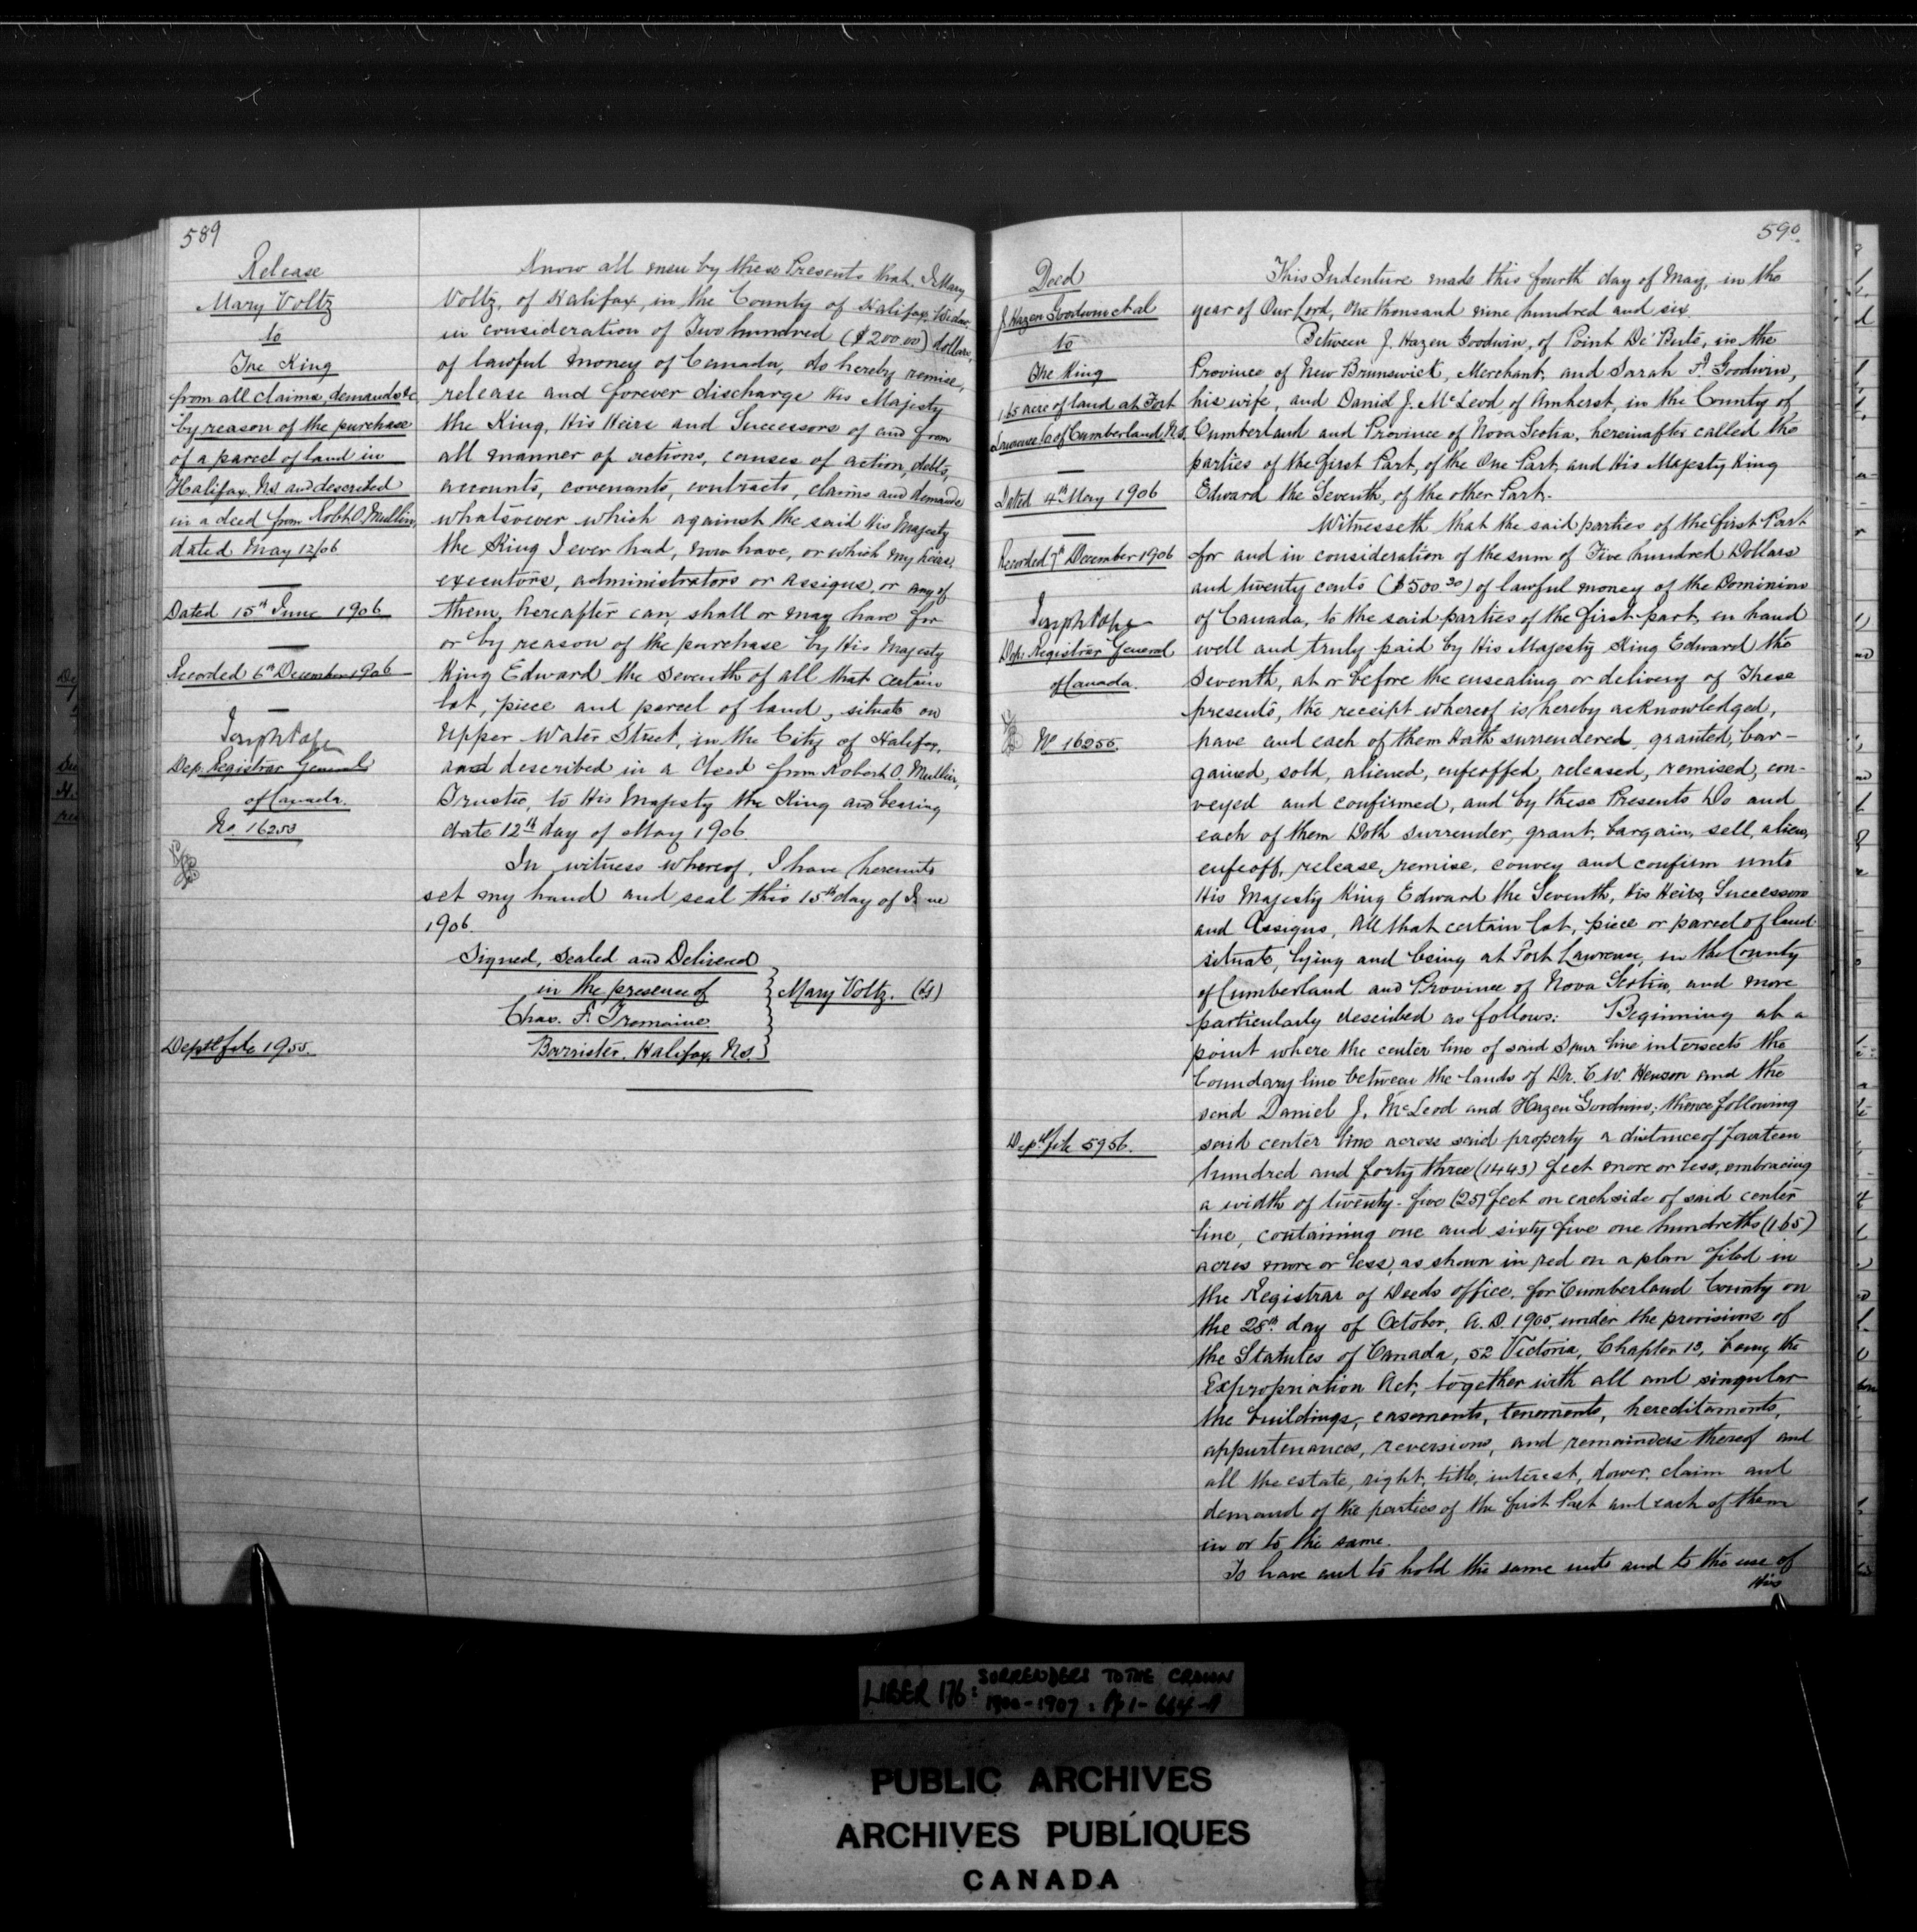 589
Release
Mary Voltz
to
The King
from all claims, demands &c
by reason of the purchase
of a parcel of land in
Halifax, N.S. and described
in a deed from Robt O. Mullin,
dated May 12/06
Dated 15th June 1906
Recorded 6th December 1906
Joseph Pope
Dep. Registrar General
of Canada.
No. 16253
Deptl file 1955.
Know all men by these Presents that, I, Mary
Voltz, of Halifax, in the County of Halifax, Widow,
in consideration of Two hundred ($200.00) dollars,
of lawful money of Canada, do hereby remise,
release and forever discharge His Majesty
the King, His Heirs and Successors of and from
all manner of actions, causes of action, debts,
accounts, covenants, contracts, claims and demands
whatsoever which against the said His Majesty
the King I ever had, now have, or which my heirs,
executors, administrators or assigns, or any of
them, hereafter can, shall or may have for
or by reason of the purchase by His Majesty
King Edward the Seventh of all that certain
lot, piece and parcel of land, situate on
Upper Water Street, in the City of Halifax,
and described in a deed from Robert O. Mullin,
Trustee, to His Majesty the King and bearing
date 12th day of May 1906
In witness whereof, I have hereunto
set my hand and seal this 15th day of June
1906.
Signed, Sealed and Delivered
in the presence of
Mary Voltz. (LS)
Chas. F. Tremaine.
Barrister, Halifax, N.S.
590.
Deed
J. Hazen Goodwin et al
to
The King
1.65 acre of land at Fort
Lawrence, Co. of Cumberland, N.S.
Dated 4th May 1906
Recorded 7th December 1906
Joseph Pope
Dep. Registrar General
of Canada.
No 16255.
Deptl file 5956.
This Indenture made this fourth day of May, in the
year of Our Lord, One thousand nine hundred and six.
Between J. Hazen Goodwin, of Point De Bute, in the
Province of New Brunswick, Merchant, and Sarah Goodwin,
his wife, and Daniel J. McLeod of Amherst, in the County of
Cumberland and Province of Nova Scotia, hereinafter called the
parties of the first Part, of the One Part, and His Majesty King
Edward the Seventh, of the other Part.
Witnesseth that the said parties of the first Part
for and in consideration of the sum of Five hundred Dollars
and twenty cents ($500.20) of lawful money of the Dominion
of Canada, to the said parties of the first part, in hand
well and truly paid by His Majesty King Edward the
Seventh, at or before the ensealing or delivery of These
presents, the receipt whereof is hereby acknowledged,
have and each of them Hath surrendered, granted, bar-
gained, sold, aliened, enfeoffed, released, remised, con-
veyed and confirmed, and by these Presents Do and
each of them Doth surrender, grant, bargain, sell, alien,
enfeoff, release, remise, convey and confirm unto
His Majesty King Edward the Seventh, His Heirs, Successors
and Assigns, All that certain lot, piece or parcel of land
situate, lying and being at Fort Lawrence, in the County
of Cumberland and Province of Nova Scotia, and more
particularly described as follows: Beginning at a
point where the center line of said Spur line intersects the
boundary line between the lands of Dr. C. W. Hewson and the
said Daniel J. McLeod and Hazen Goodwin; thence following
said center line across said property a distance of fourteen
hundred and forty three (1443) feet more or less, embracing
a width of twenty-five (25) feet on each side of said center
line, containing one and sixty five one hundreths (1.65)
acres more or less, as shown in red on a plan filed in
the Registrar of Deeds office, for Cumberland County on
the 28th day of October, A.D. 1905, under the provisions of
the Statutes of Canada, 52 Victoria, Chapter 13, being the
Expropriation Act, together with all and singular
the buildings, easements, tenements, hereditaments,
appurtenances, reversions, and remainders thereof and
all the estate, right, title, interest, dower, claim and
demand of the parties of the first Part and each of them
in or to the same.
To have and to hold the same unto and to the use of
His
LIBER 176: SURRENDERS TO THE CROWN
1900-1907: Pp 1-664-A
PUBLIC ARCHIVES
ARCHIVES PUBLIQUES
CANADA